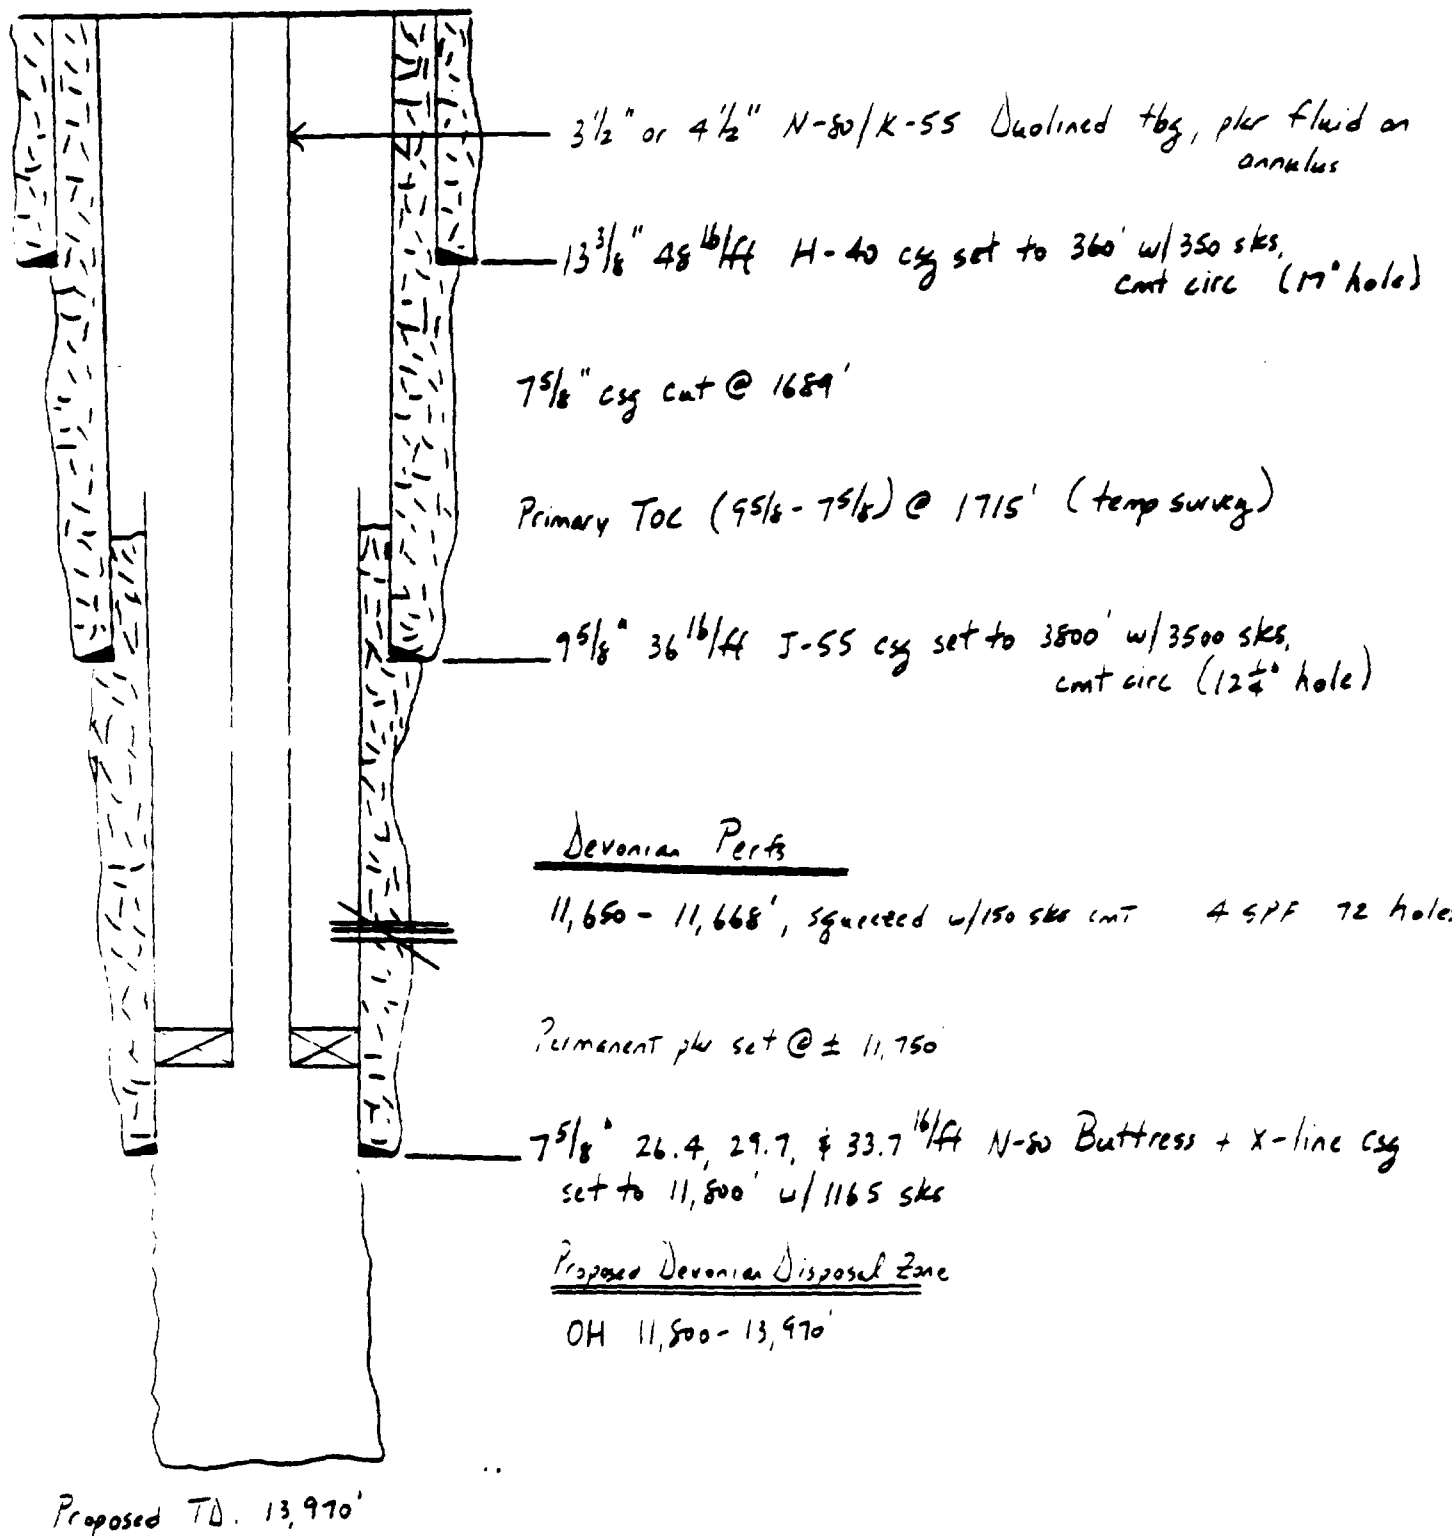 3 1/2" or 4 1/2" N-80/K-55 Duolined tbg, pkr fluid on
annulus
13 3/8" 48 lb/ft H-40 csg set to 360' w/350 sks,
cmt circ (17" hole)
7 5/8" csg cut @ 1689'
Primary TOC (9 5/8 - 7 5/8) @ 1715' (temp survey)
9 5/8" 36 lb/ft J-55 csg set to 3800' w/3500 sks,
cmt circ (12 1/4" hole)
Devonian Perfs
11,650 - 11,668', squeezed w/150 sks cmt 4 SPF 72 holes
Permanent pkr set @ ± 11,750'
7 5/8" 26.4, 29.7, & 33.7 lb/ft N-80 Buttress + X-line csg
set to 11,800' w/1165 sks
Proposed Devonian Disposal Zone
OH 11,800 - 13,970'
Proposed TD. 13,970'